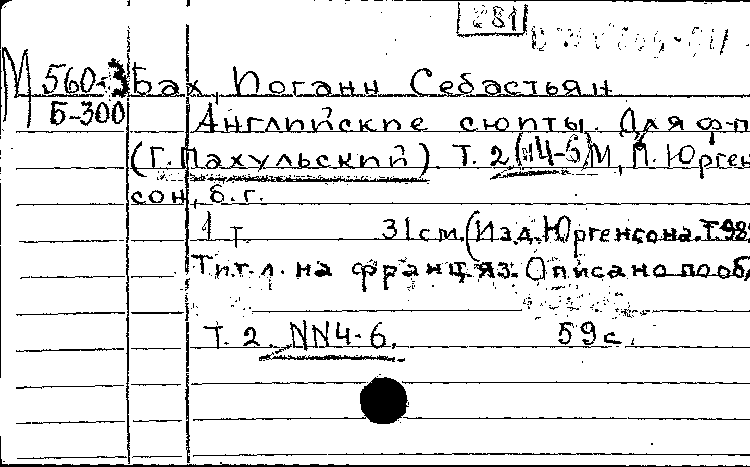 281
М 560-3 Бах, Иоганн Себастьян
Б-300 Английские сюиты. Для ф-п
(Г. Пахульский). Т. 2 (№4-6) М., П. Юрген
сон, б.г.
1 т. 31 см. (Изд. Юргенсона. Т. 982
Тит. л. на франц. яз. Описано по об
Т. 2. NN4-6. 59 с.